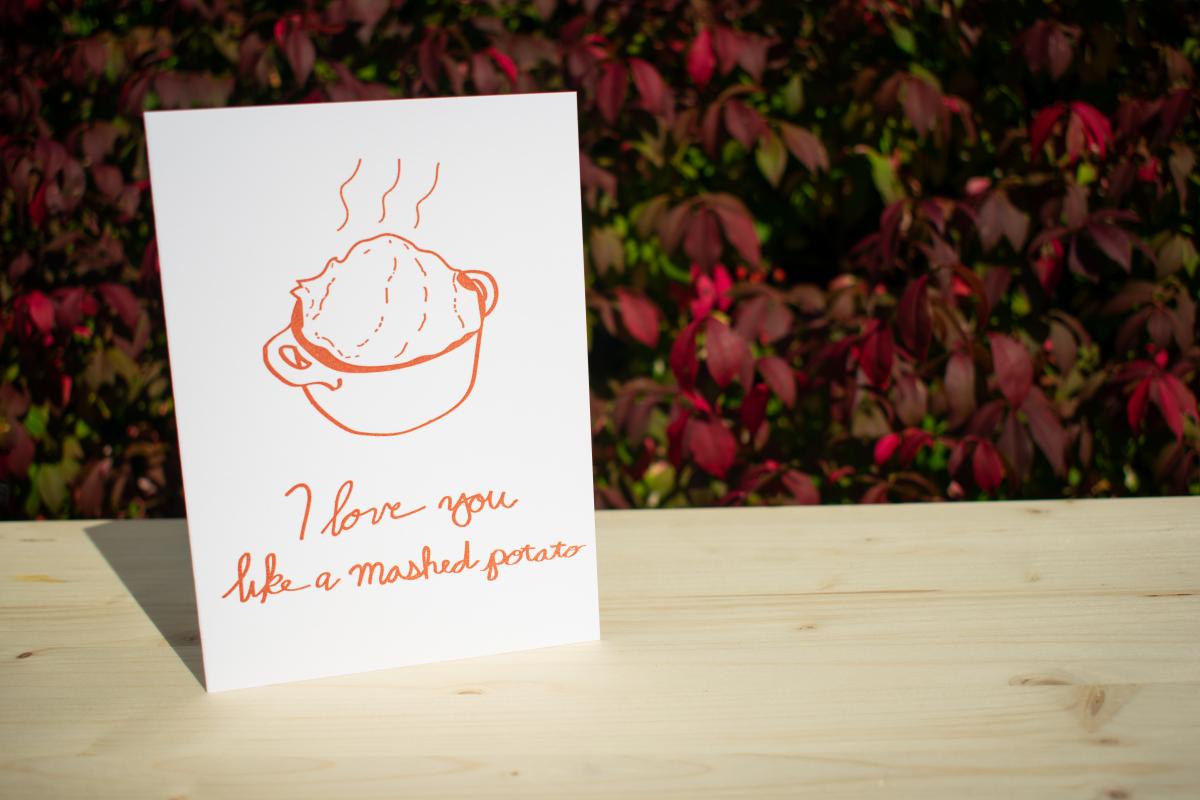 I love you
like a mashed potato